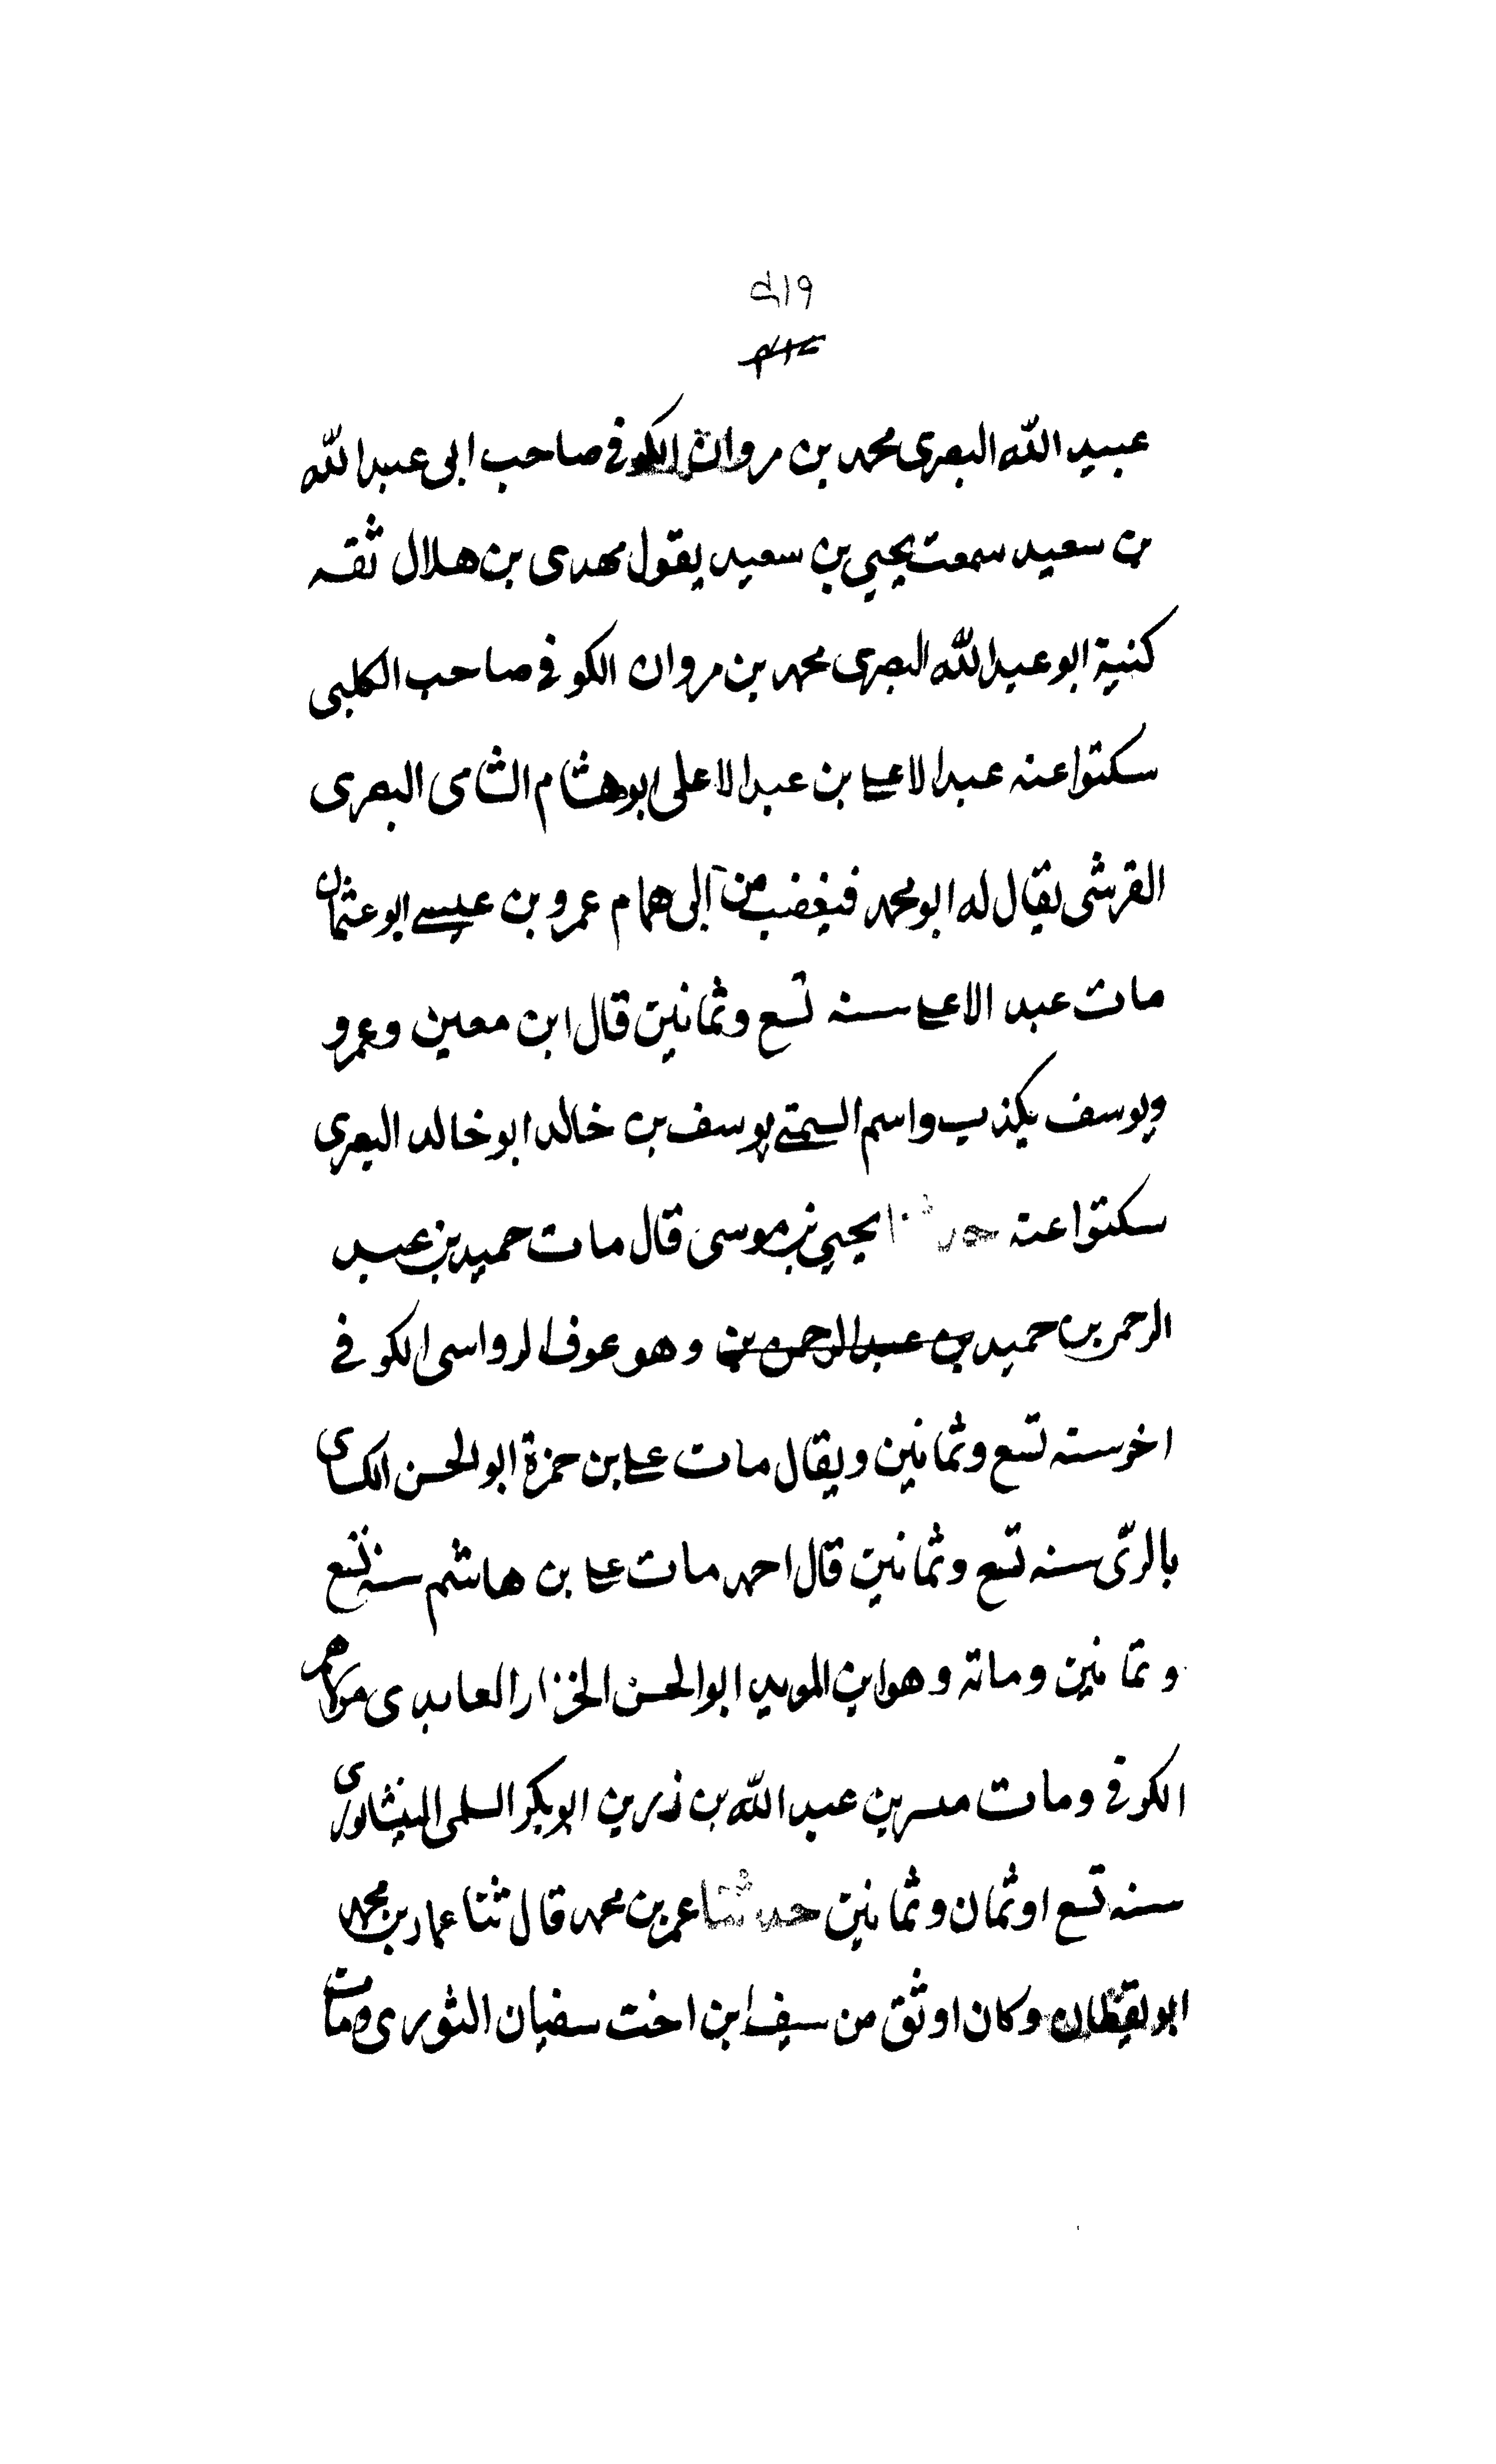 عبيد الله البصرى محمد بن مروان الكوفى صاحب ابى عبد الله
بن سعيد سمعت يحيى بن سعيد يقول مهدى بن هلال ثقه
كنية ابو عبد الله البصرى محمد بن مروان الكوفى صاحب الكلبى
سكتوا عنه عبد الاعلى بن عبد الاعلى ابو هشام الشامى البصرى
القرشى يقال له ابو محمد فيغضب من ابى همام عمرو بن عيسى ابو عثمان
مات عبد الاعلى سنه تسع وثمانين قال ابن معين وعمرو
ويوسف يكذب واسم السمتى يوسف بن خالد ابو خالد البصرى
سكتوا عنه حدثنا يحيى بن موسى قال مات حميد بن عبد
الرحمن بن حميد بن عبد الرحمن بن وهو عوف الرواسى الكوفى
اخر سنه تسع وثمانين ويقال مات على بن حمزة ابو الحسن الكساى
بالرى سنه تسع وثمانين قال احمد مات على بن هاشم سنه تسع
وثمانين ومائة وهو ابن البريد ابو الحسن الخزاز العابدى مولاهم
الكوفى ومات مبشر بن عبد الله بن رزين ابو بكر السلمى النيشاورى
سنه تسع او ثمان وثمانين حدثنا عمر بن محمد قال ثنا عمار بن محمد
ابو يقظان وكان اوثق من سيف ابن اخت سفيان الثورى ومات